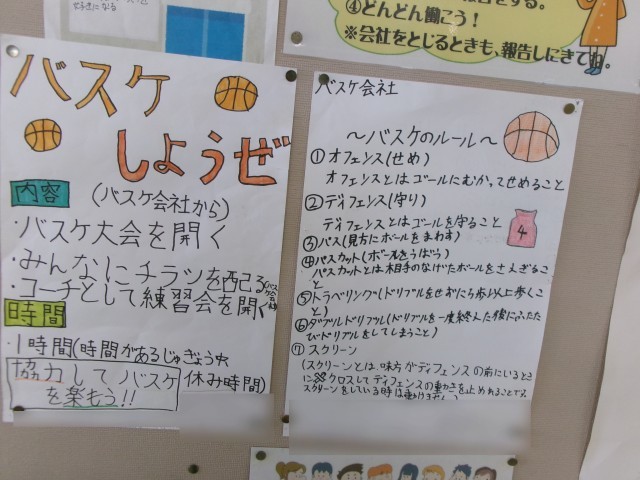 ④どんどん働こう！
※会社をとじるときも、報告しにきてね。
バスケ
しようぜ
内容
(バスケ会社から)
・バスケ大会を開く
・みんなにチラシを配る
・コーチとして練習会を開く
時間
・1時間(時間があるじゅぎょう中
休み時間)
協力してバスケ
を楽もう!!
バスケ会社
～バスケのルール～
①オフェンス(せめ)
オフェンスとはゴールにむかってせめること
②ディフェンス(守り)
ディフェンスとはゴールを守ること
4
③パス(見方にボールをまわす)
④パスカット(ボールをうばう)
パスカットとは相手のなげたボールをさえぎるこ
と
⑤トラベリング(ドリブルをせずに3歩以上歩くこ
と)
⑥ダブルドリブル(ドリブルを一度終えた後にふたた
びドリブルをしてしまうこと)
⑦スクリーン
(スクリーンとは、味方がディフェンスの前にいるとき
に クロスしてディフェンスの動きを止めれることです
スクリーンをしている時は